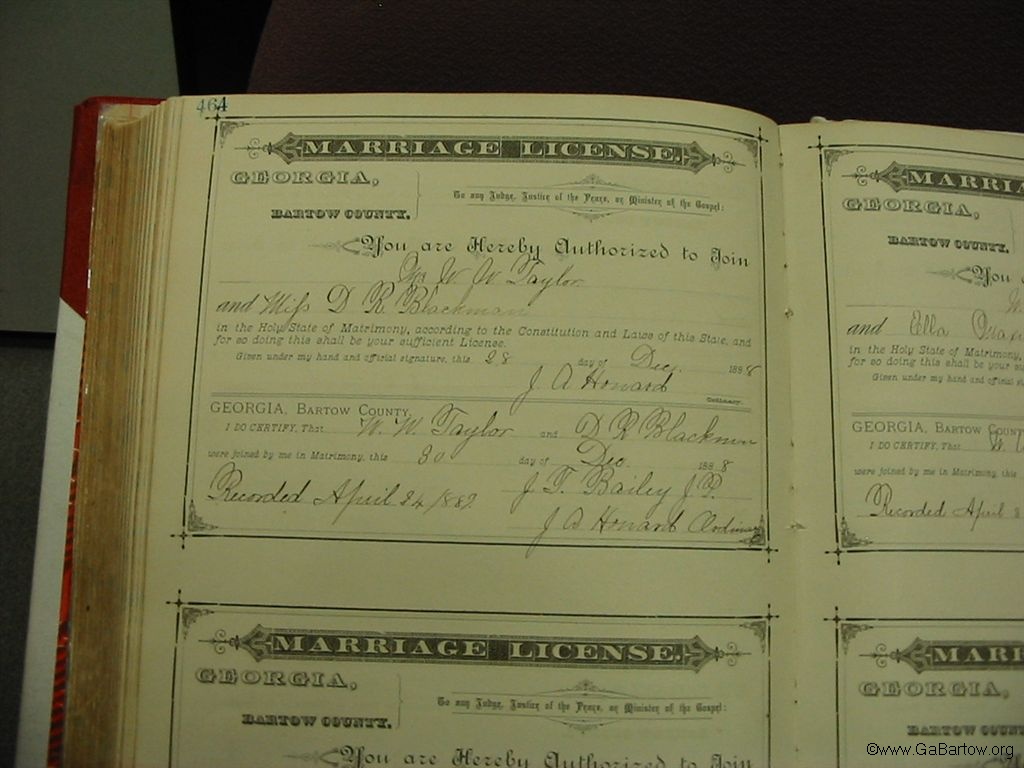 464
MARRIAGE LICENSE.
GEORGIA,
BARTOW COUNTY.
To any Judge, Justice of the Peace, or Minister of the Gospel:
You are Hereby Authorized to Join
Mr W W Taylor
and Miss D R Blackman
in the Holy State of Matrimony, according to the Constitution and Laws of this State, and
for so doing this shall be your sufficient License.
Given under my hand and official signature, this 28 day of Dec. 1888
J A Howard
Ordinary.
GEORGIA, BARTOW COUNTY.
I DO CERTIFY, That W. W. Taylor and D R Blackman
were joined by me in Matrimony, this 30 day of Dec. 1888
J. T. Bailey J.P.
Recorded April 24 1889.
J A Howard Ordinary
MARRIAGE LICENSE.
GEORGIA,
BARTOW COUNTY.
To any Judge, Justice of the Peace, or Minister of the Gospel:
You are Hereby Authorized to Join
MARRIA
GEORGIA,
BARTOW COUNTY.
You
and Ella
in the Holy State of Matrimony,
for so doing this shall be your su
Given under my hand and official
GEORGIA, BARTOW COUNT
I DO CERTIFY, That
were joined by me in Matrimony, this
Recorded April
MARR
GEORGIA,
BARTOW COUN
You are
©www.GaBartow.org